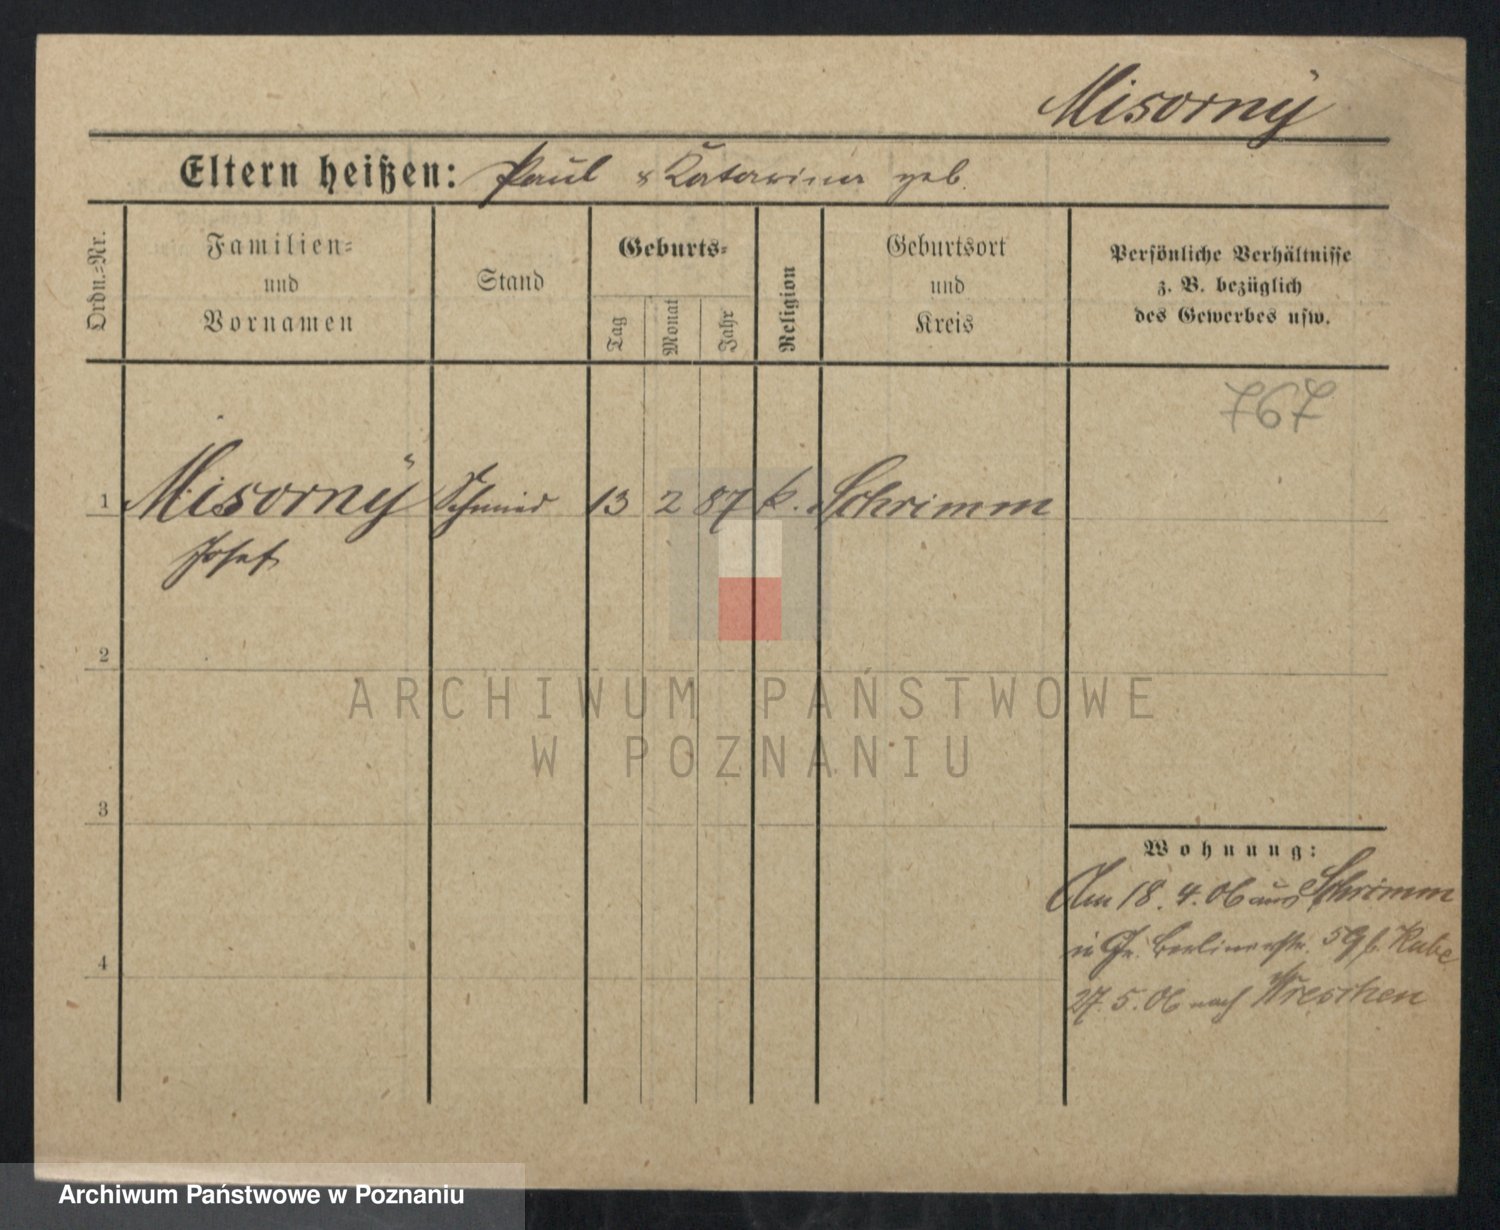 Misorny
Eltern heißen: Paul & Katarina geb.
Ordn.-Nr.
Familien-
und
Vornamen
Stand
Geburts-
Tag
Monat
Jahr
Religion
Geburtsort
und
Kreis
Persönliche Verhältnisse
z. B. bezüglich
des Gewerbes usw.
797
1 Misorny Schmied 13 2 87 k. Schrimm
Josef
2
ARCHIWUM PAŃSTWOWE
W POZNANIU
3
Wohnung:
Am 18.4.06 aus Schrimm
in Berlinerstr. 59 b. Rabe
27.5.06 nach Wreschen
4
Archiwum Państwowe w Poznaniu